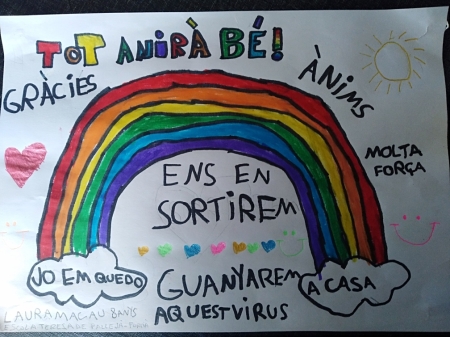 TOT ANIRÀ BÉ!
GRÀCIES
ÀNIMS
MOLTA
FORÇA
ENS EN
SORTIREM
JO EM QUEDO
A CASA
GUANYAREM
AQUEST VIRUS
LAURA MACAU 8 ANYS